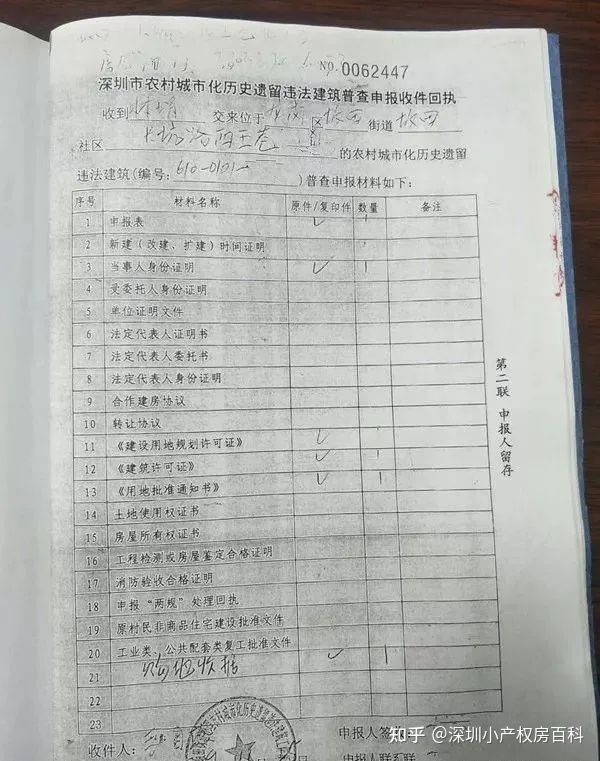 NO.0062447
深圳市农村城市化历史遗留违法建筑普查申报收件回执
收到 交来位于 区 坂田 街道 坂田
社区 的农村城市化历史遗留
违法建筑(编号: 610-0101- )普查申报材料如下:
序号 材料名称 原件/复印件 数量 备注
1 申报表 ✓ 1
2 新建(改建、扩建)时间证明
3 当事人身份证明 ✓ 1
4 受委托人身份证明
5 单位证明文件
6 法定代表人证明书
7 法定代表人委托书
8 法定代表人身份证明
9 合作建房协议
10 转让协议
11 《建设用地规划许可证》 ✓
12 《建筑许可证》 ✓ 1
13 《用地批准通知书》 ✓ 1
14 土地使用权证书
15 房屋所有权证书
16 工程检测或房屋鉴定合格证明
17 消防验收合格证明
18 申报“两规”处理回执
19 原村民非商品住宅建设批准文件
20 工业类、公共配套类复工批准文件
21 收据 ✓ 1
22
23
收件人:
申报人签
申报人联系
第二联 申报人留存
知乎 @深圳小产权房百科